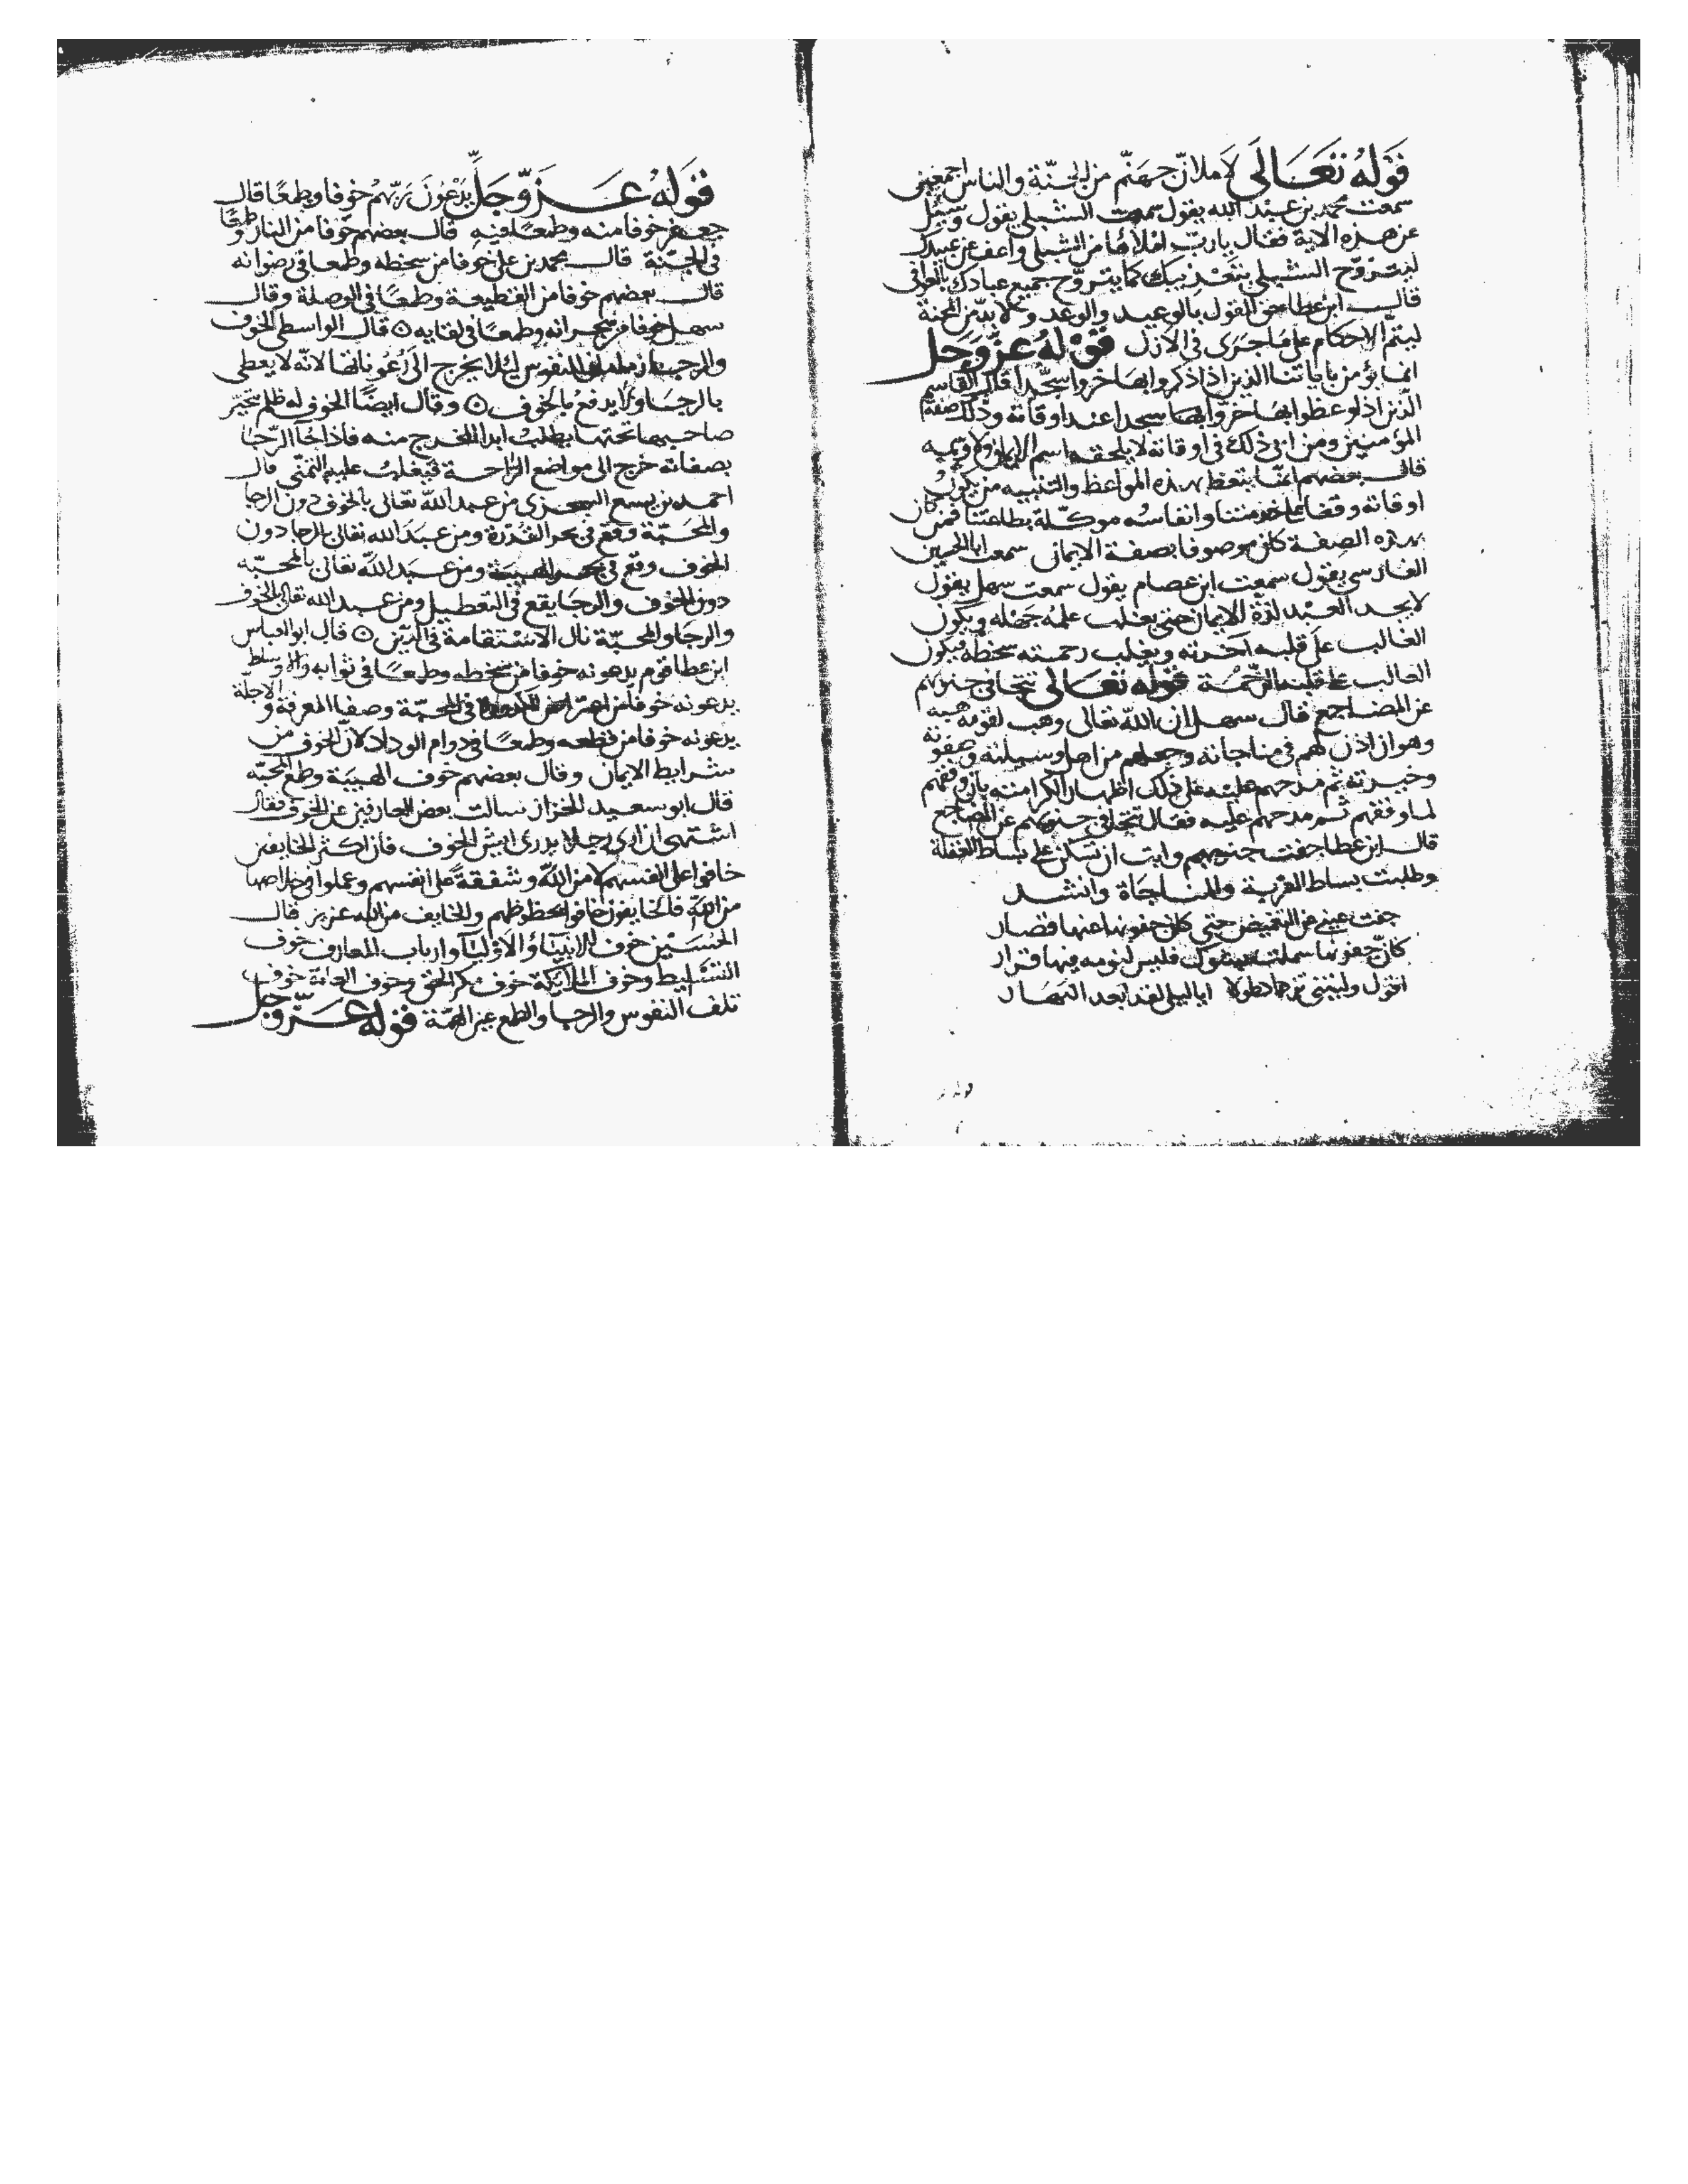 قوله تعالى لاملان جهنم من الجنة والناس اجمعين
سمعت محمد بن عبد الله يقول سمعت الشبلي يقول وسئل
عن هذه الاية فقال يا رب املاها من الشبلي واعف عن عبيدك
ليتروح الشبلي بتعذيبك كما يتروح جميع عبادك بالعوافى
قال ابن عطا القول بالوعيد والوعد ولا بد من المحنة
ليتم الاحكام على ما جرى فى الازل قوله عز وجل
انما يؤمن باياتنا الذين اذا ذكروا بها خروا سجدا قال القاسم
الذين اذا وعظوا بها خروا لها سجدا عند اوقاته وذلك صفة
المؤمنين ومن ابى ذلك فى اوقاته لا يلحقه اسم الايمان ولا وسمه
قال بعضهم انما يتعظ بهذه المواعظ والتنبيه من يكون
اوقاته وقفا على خدمتنا وانفاسه موكلة بطاعتنا فمن كان
بهذه الصفة كان موصوفا بصفة الايمان سمعت ابا الحسين
الفارسى يقول سمعت ابن عصام يقول سمعت سهل يقول
لا يجد العبد لذة الايمان حتى يغلب علمه جهله ويكون
الغالب على قلبه آخرته ويغلب رحمته سخطه فيكون
الغالب على قلبه الرحمة قوله تعالى تتجافى جنوبهم
عن المضاجع قال سهل ان الله تعالى وهب لقوم هبة
وهو ان اذن لهم فى مناجاته وجعلهم من اهل وسيلته وصفوته
وخيرته ثم مدحهم عليه على ذلك اظهارا لكرامته بان وفقهم
لما وفقهم ثم مدحهم عليه فقال تتجافى جنوبهم عن المضاجع
قال ابن عطا جفت جنوبهم وابت ان تسكن على بساط الغفلة
وطلبت بساط القربة والمناجاة وانشد
جفت عينى عن التغميض حتى كان جفونها عنها قصار
كان جفونها سملت بشوك فليس لنومه فيها قرار
اقول وليلتى تزداد طولا ايا ليلى لقد بعد النهار
قوله عز وجل يدعون ربهم خوفا وطمعا قال
جعفر خوفا منه وطمعا فيه قال بعضهم خوفا من النار وطمعا
فى الجنة قال محمد بن على خوفا من سخطه وطمعا فى رضوانه
قال بعضهم خوفا من القطيعة وطمعا فى الوصلة وقال
سهل خوفا من هجرانه وطمعا فى لقايه قال الواسطى الخوف
والرجا زمامان للنفوس ليلا يخرج الى رعوناتها لانه لا يعطى
بالرجا ولا يدفع بالخوف وقال ايضا الخوف له ظلم يتحير
صاحبها تحتها يطلب ابدا المخرج منه فاذا جآ الرجا
بصفاته خرج الى مواضع الراحة فيغلب عليه التمنى قال
احمد بن يسع السجزى من عبد الله تعالى بالخوف دون الرجا
والمحبة وقع فى بحر القدرة ومن عبد الله تعالى بالرجا دون
الخوف وقع فى بحر الهيبة ومن عبد الله تعالى بالمحبة
دون الخوف والرجا يقع فى التعطيل ومن عبد الله تعالى بالخوف
والرجا والمحبة نال الاستقامة فى الدين قال ابو العباس
ابن عطا قوم يدعونه خوفا من سخطه وطمعا فى ثوابه والاوساط
يدعونه خوفا من اعتراض فى المحبة وصفا المعرفة والاجلة
يدعونه خوفا من قطعه وطمعا فى دوام الوداد لان الخوف من
شرايط الايمان وقال بعضهم خوف الهيبة وطمع المحبة
قال ابو سعيد الخراز سالت بعض العارفين عن الخوف فقال
اشتهى ان ارى رجلا يدرى ايش الخوف فان اكثر الخايفين
خافوا على انفسهم لا من الله وشفقة على انفسهم وعملوا فى خلاصها
من الله فالخايفون خافوا لحظوظهم والخايف من الله عزيز قال
الحسين خوف الانبيآ والاوليآ وارباب المعارف خوف
التسليط وخوف الملائكة خوف مكر الحق وخوف العامة خوف
تلف النفوس والرجا والطمع عين التهمة قوله عز وجل